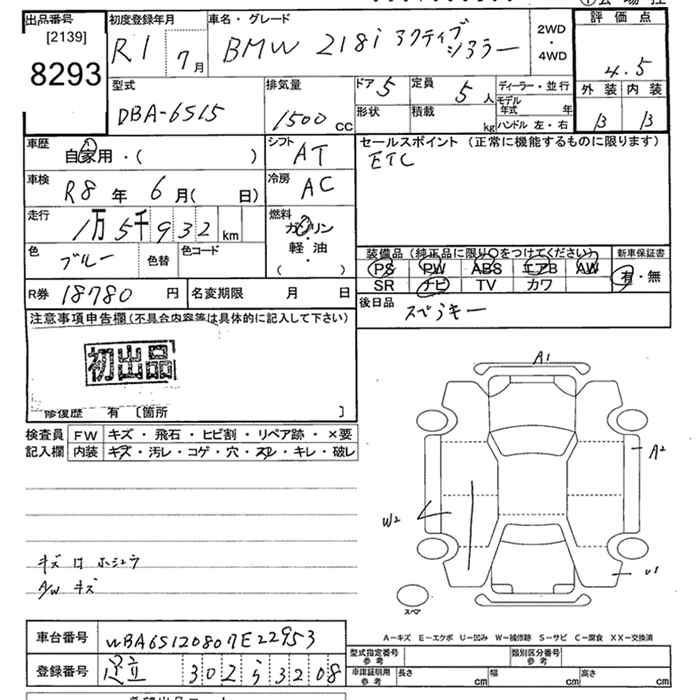 出品番号 初度登録年月 車名・グレード 2WD・4WD 評価点
[2139] 8293 R1 7月 BMW 218i アクティブ
4.5
型式 排気量 ドア 5 定員 5人 ディーラー・並行 外装 内装
DBA-6S15 1500cc 形状 積載 kg モデル年式 年 ハンドル 左・右 B B
車歴 シフト セールスポイント(正常に機能するものに限ります)
自家用・( ) AT ETC
車検 R8年 6月( 日) 冷房 AC
走行 1万5千932km 燃料 ガソリン
軽・油
・( )
色 ブルー 色替 色コード
装備品(純正品に限り○をつけてください) 新車保証書
PS PW ABS エアB AW 有・無
SR ナビ TV カワ
R券 18780円 名変期限 月 日 後日品
スペアキー
注意事項申告欄(不具合内容等は具体的に記入して下さい)
初出品
修復歴 有 〔箇所 〕
検査員 FW キズ・飛石・ヒビ割・リペア跡・×要
記入欄 内装 キズ・汚レ・コゲ・穴・スレ・キレ・破レ
A1
A2
W2
U1
キズ
A/W キズ
スペア
A－キズ E－エクボ U－凹み W－補修跡 S－サビ C－腐食 XX－交換済
車台番号 WBA6S120807E22953
型式指定番号 参考 類別区分番号 参考
登録番号 足立 302 ら 3208
車庫証明用 参考 長さ cm 幅 cm 高さ cm